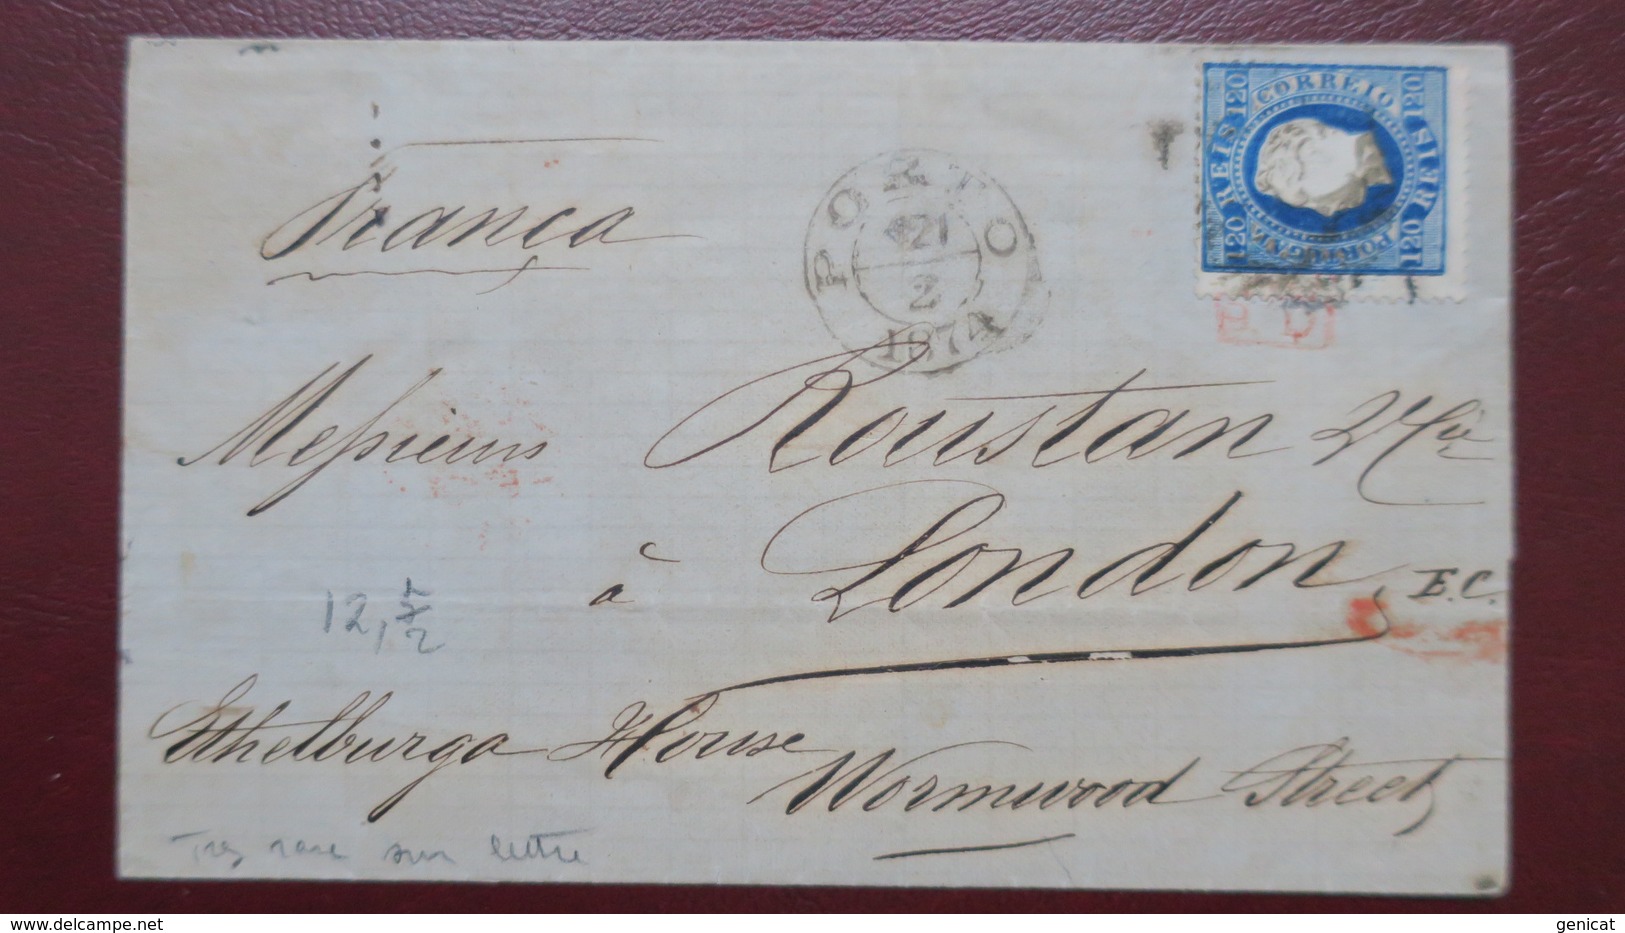 120 CORREIO 120
REIS REIS
120 PORTUGAL 120
França
PORTO
21
2
1874
P.D.
Messieurs Roustan & Cie
à London, E.C.
12, 1/2
Ethelburga House
Wormwood Street
Tres rare sur lettre
www.delcampe.net
genicat